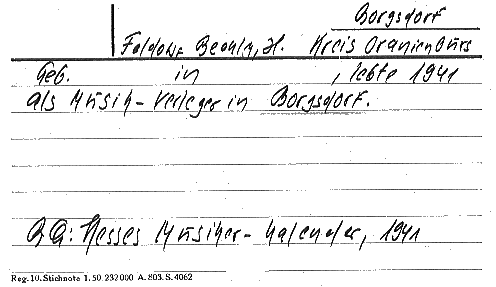 Borgsdorf
H. Kreis Oranienburg
Geb. in , lebte 1941
als Musik-Verleger in Borgsdorf.
QQ: Hesses Musiker-Kalender, 1941
Reg. 10. Stichnote 1. 50 232000 A. 803. S. 4062